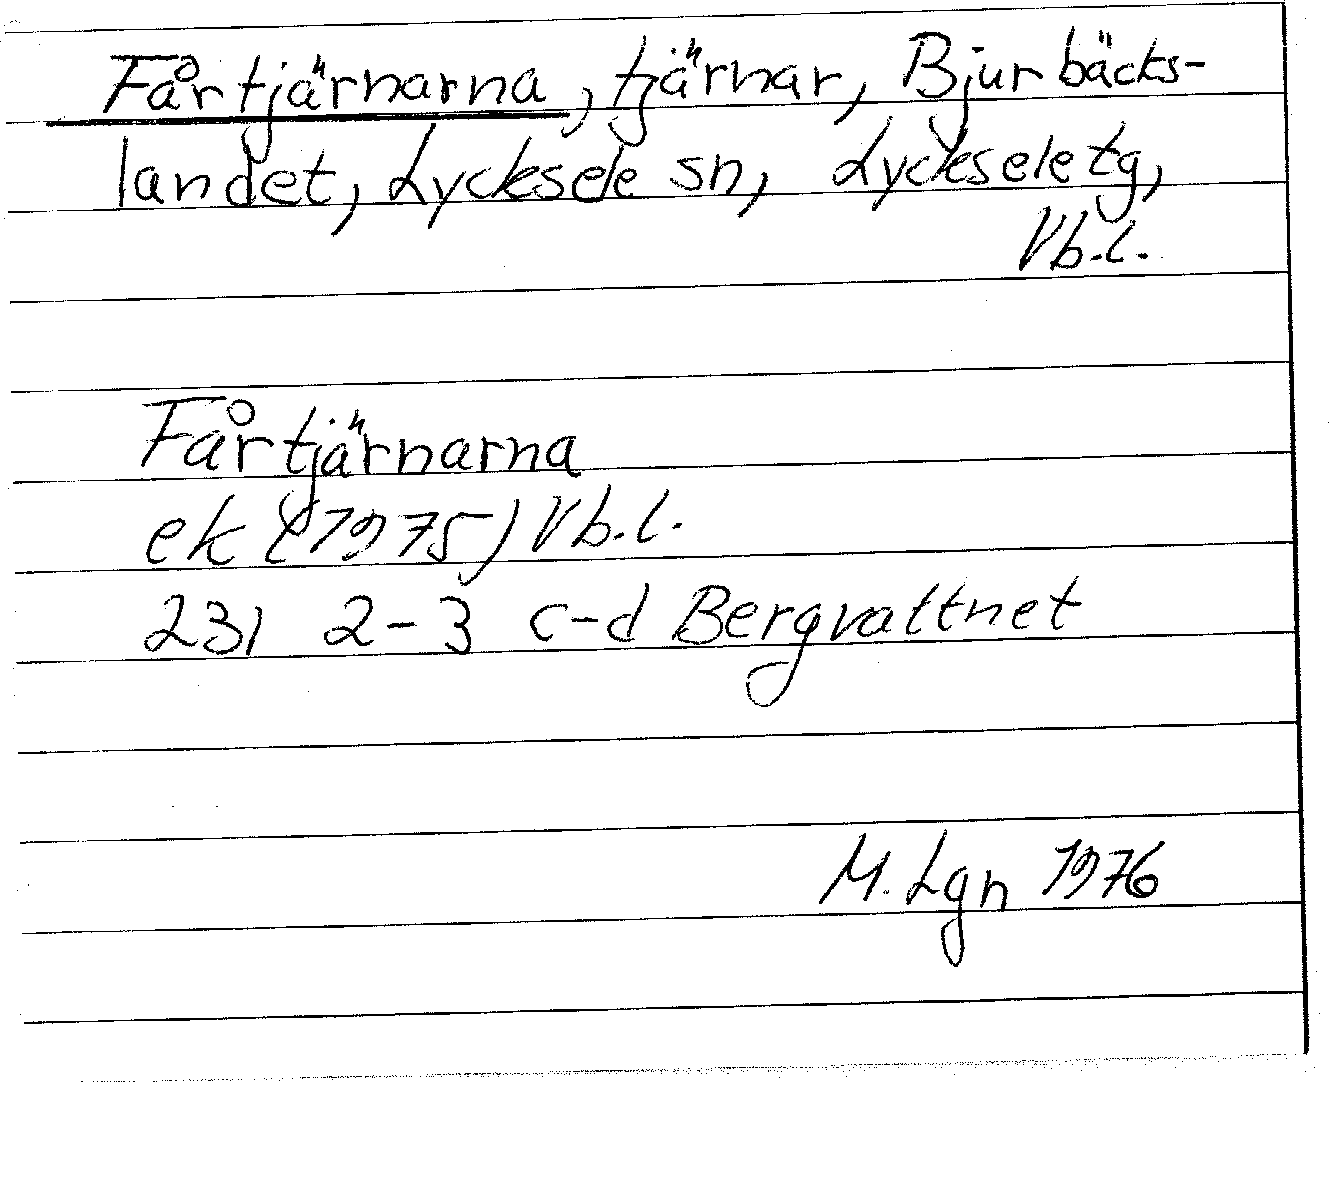 Fårtjärnarna, tjärnar, Bjurbäcks-
landet, Lycksele sn, Lycksele tg,
Vb.l.
Fårtjärnarna
ek (1975) Vb.l.
231 2-3 c-d Bergvattnet
M. Lgn 1976